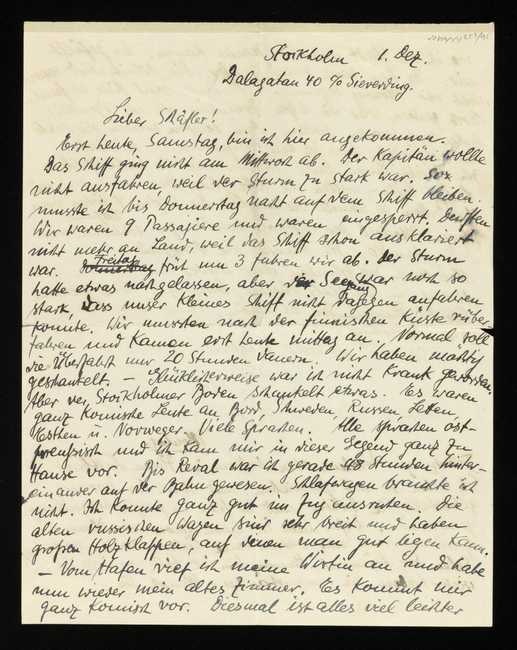 Stockholm 1. Dez.
Dalagatan 40 c/o Sieverding.
Lieber Schäfler!
Erst heute, Samstag, bin ich hier angekommen.
Das Schiff ging nicht am Mittwoch ab. Der Kapitän wollte
nicht ausfahren, weil der Sturm zu stark war. So
musste ich bis Donnerstag nacht auf dem Schiff bleiben.
Wir waren 9 Passajiere und waren eingesperrt. Durften
nicht mehr an Land, weil das Schiff schon ausklariert
war. Freitag früh um 3 fuhren wir ab. Der Sturm
hatte etwas nachgelassen, aber der Seegang war noch so
stark, dass unser kleines Schiff nicht dagegen anfahren
konnte. Wir mussten nach der finnischen Küste rüber
fahren und kamen erst heute mittag an. Normal soll
die Überfahrt nur 20 Stunden dauern. Wir haben mächtig
geschaukelt. — Glücklicherweise war ich nicht krank geworden.
Aber der Stockholmer Boden schaukelt etwas. Es waren
ganz komische Leute an Bord, Schweden, Russen, Letten,
Esthen u. Norweger. Viele Sprachen. Alle sprachen ost-
preussisch und ich kam mir in dieser Gegend ganz zu
Hause vor. Bis Reval war ich gerade 48 Stunden hinter-
einander auf der Bahn gewesen. Schlafwagen brauchte ich
nicht. Ich konnte ganz gut im Zug ausruhen. Die
alten russischen Wagen sind sehr breit und haben
grossen Holzklappen, auf denen man gut liegen kann.
— Vom Hafen rief ich meine Wirtin an und habe
nun wieder mein altes Zimmer. Es kommt mir
ganz komisch vor. Diesmal ist alles viel leichter